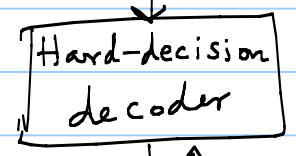 Hard-decision
decoder